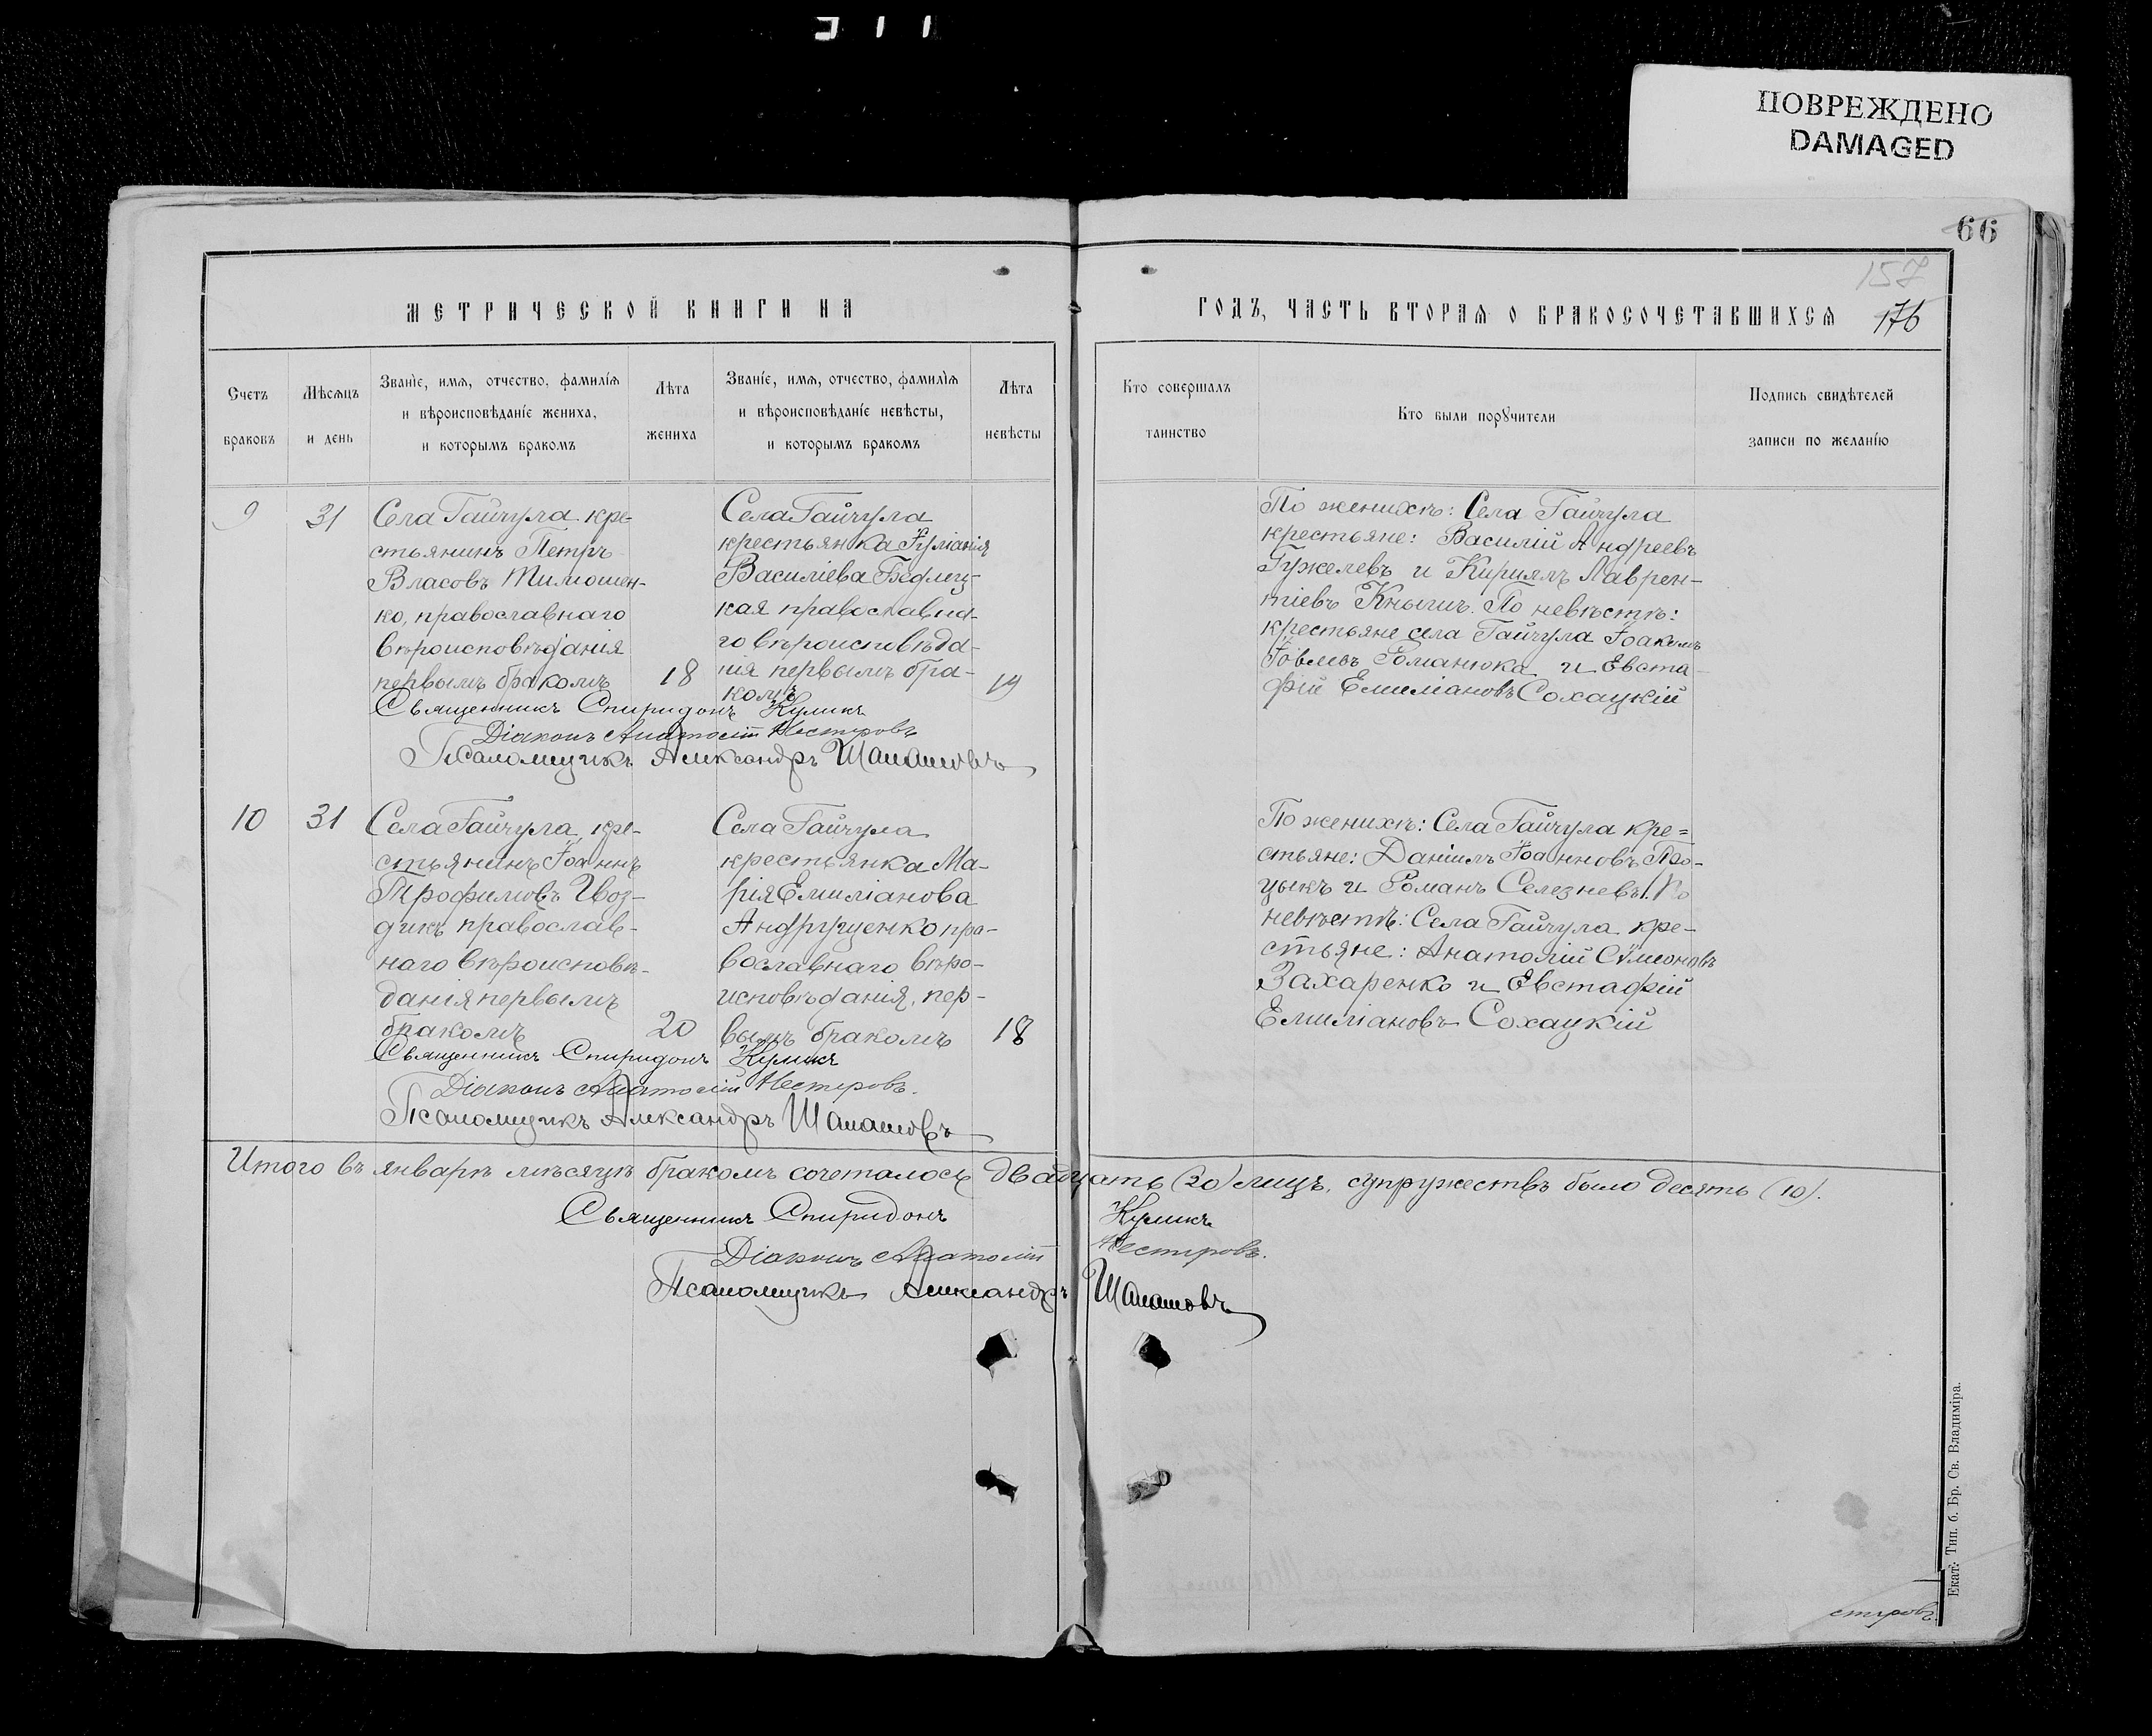 ПОВРЕЖДЕНО
DAMAGED
66
157
176
МЕТРИЧЕСКОЙ КНИГИ НА
ГОДЪ, ЧАСТЬ ВТОРАЯ О БРАКОСОЧЕТАВШИХСЯ
Счетъ
браковъ
Мѣсяцъ
и день
Званіе, имя, отчество, фамилія
и вѣроисповѣданіе жениха,
и которымъ бракомъ
Лѣта
жениха
Званіе, имя, отчество, фамилія
и вѣроисповѣданіе невѣсты,
и которымъ бракомъ
Лѣта
невѣсты
Кто совершалъ
таинство
Кто были поручители
Подпись свидѣтелей
записи по желанію
9
31
Села Гайчула кре-
стьянинъ Петръ
Власовъ Тимошен-
ко, православнаго
вѣроисповѣданія
первымъ бракомъ
18
Села Гайчула
крестьянка Іуліанія
Василіева
кая православна-
го вѣроисповѣда-
нія первымъ бра-
комъ
19
По женихѣ: Села Гайчула
крестьяне: Василій Андреевъ
Гужелевъ и Кириллъ Лаврен-
тіевъ Кнышъ. По невѣстѣ:
крестьяне села Гайчула Іоакимъ
Іовлевъ Романюка и Евста-
фій Емиліановъ Сохацкій
Священникъ Спиридонъ Куликъ
Діаконъ Анатолій Нестеровъ
Псаломщикъ Александръ
10
31
Села Гайчула, кре-
стьянинъ Іоаннъ
Трофимовъ Гвоз-
дикъ православ-
наго вѣроисповѣ-
данія первымъ
бракомъ
20
Села Гайчула
крестьянка Ма-
рія Емиліанова
Андрущенко пра-
вославнаго вѣро-
исповѣданія, пер-
вымъ бракомъ
18
По женихѣ: Села Гайчула кре=
стьяне: Даніилъ Іоанновъ По-
цыкъ и Романъ Селезневъ. По
невѣстѣ: Села Гайчула кре-
стьяне: Анатолій Сѵмеоновъ
Захаренко и Евстафій
Емиліановъ Сохацкій
Священникъ Спиридонъ Куликъ
Діаконъ Анатолій Нестеровъ.
Псаломщикъ Александръ
Итого въ январѣ мѣсяцѣ бракомъ сочеталось двадцать (20) лицъ, супружествъ было десять (10).
Священникъ Спиридонъ Куликъ
Діаконъ Анатолій Нестеровъ.
Псаломщикъ Александръ
Екат. Тип. б. Бр. Св. Владиміра.